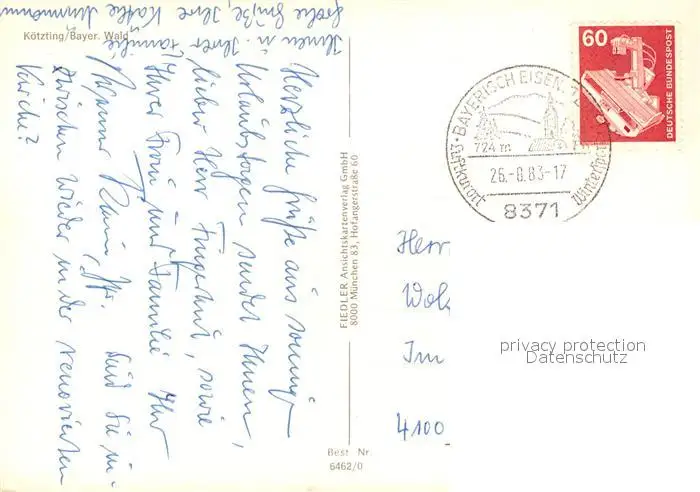 Kötzting/Bayer. Wald
Herzliche Grüße aus sonnigen
Urlaubstagen sendet Ihnen,
lieber Herr sowie
Ihrer Frau und Familie Ihr
Sind Sie in-
zwischen wieder in der renovierten
Kirche?
Ihnen u. Ihrer Familie
frohe Grüße, Ihre Käthe
FIEDLER Ansichtskartenverlag GmbH
8000 München 83, Hofangerstraße 60
Best Nr.
6462/0
60
DEUTSCHE BUNDESPOST
BAYERISCH EISEN
724 m
Luftkurort
26.-8.83-17
8371
Herr
Wol
Im
4100
privacy protection
Datenschutz